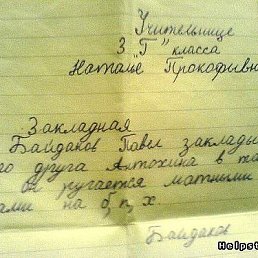 Учительнице
3 "Г" класса
Наталье Прокофьевн
Закладная
Байдаков Павел заклады
го друга Алтохина в то
он ругается матными
ами на б, п, х.
Байдаков
Helpste